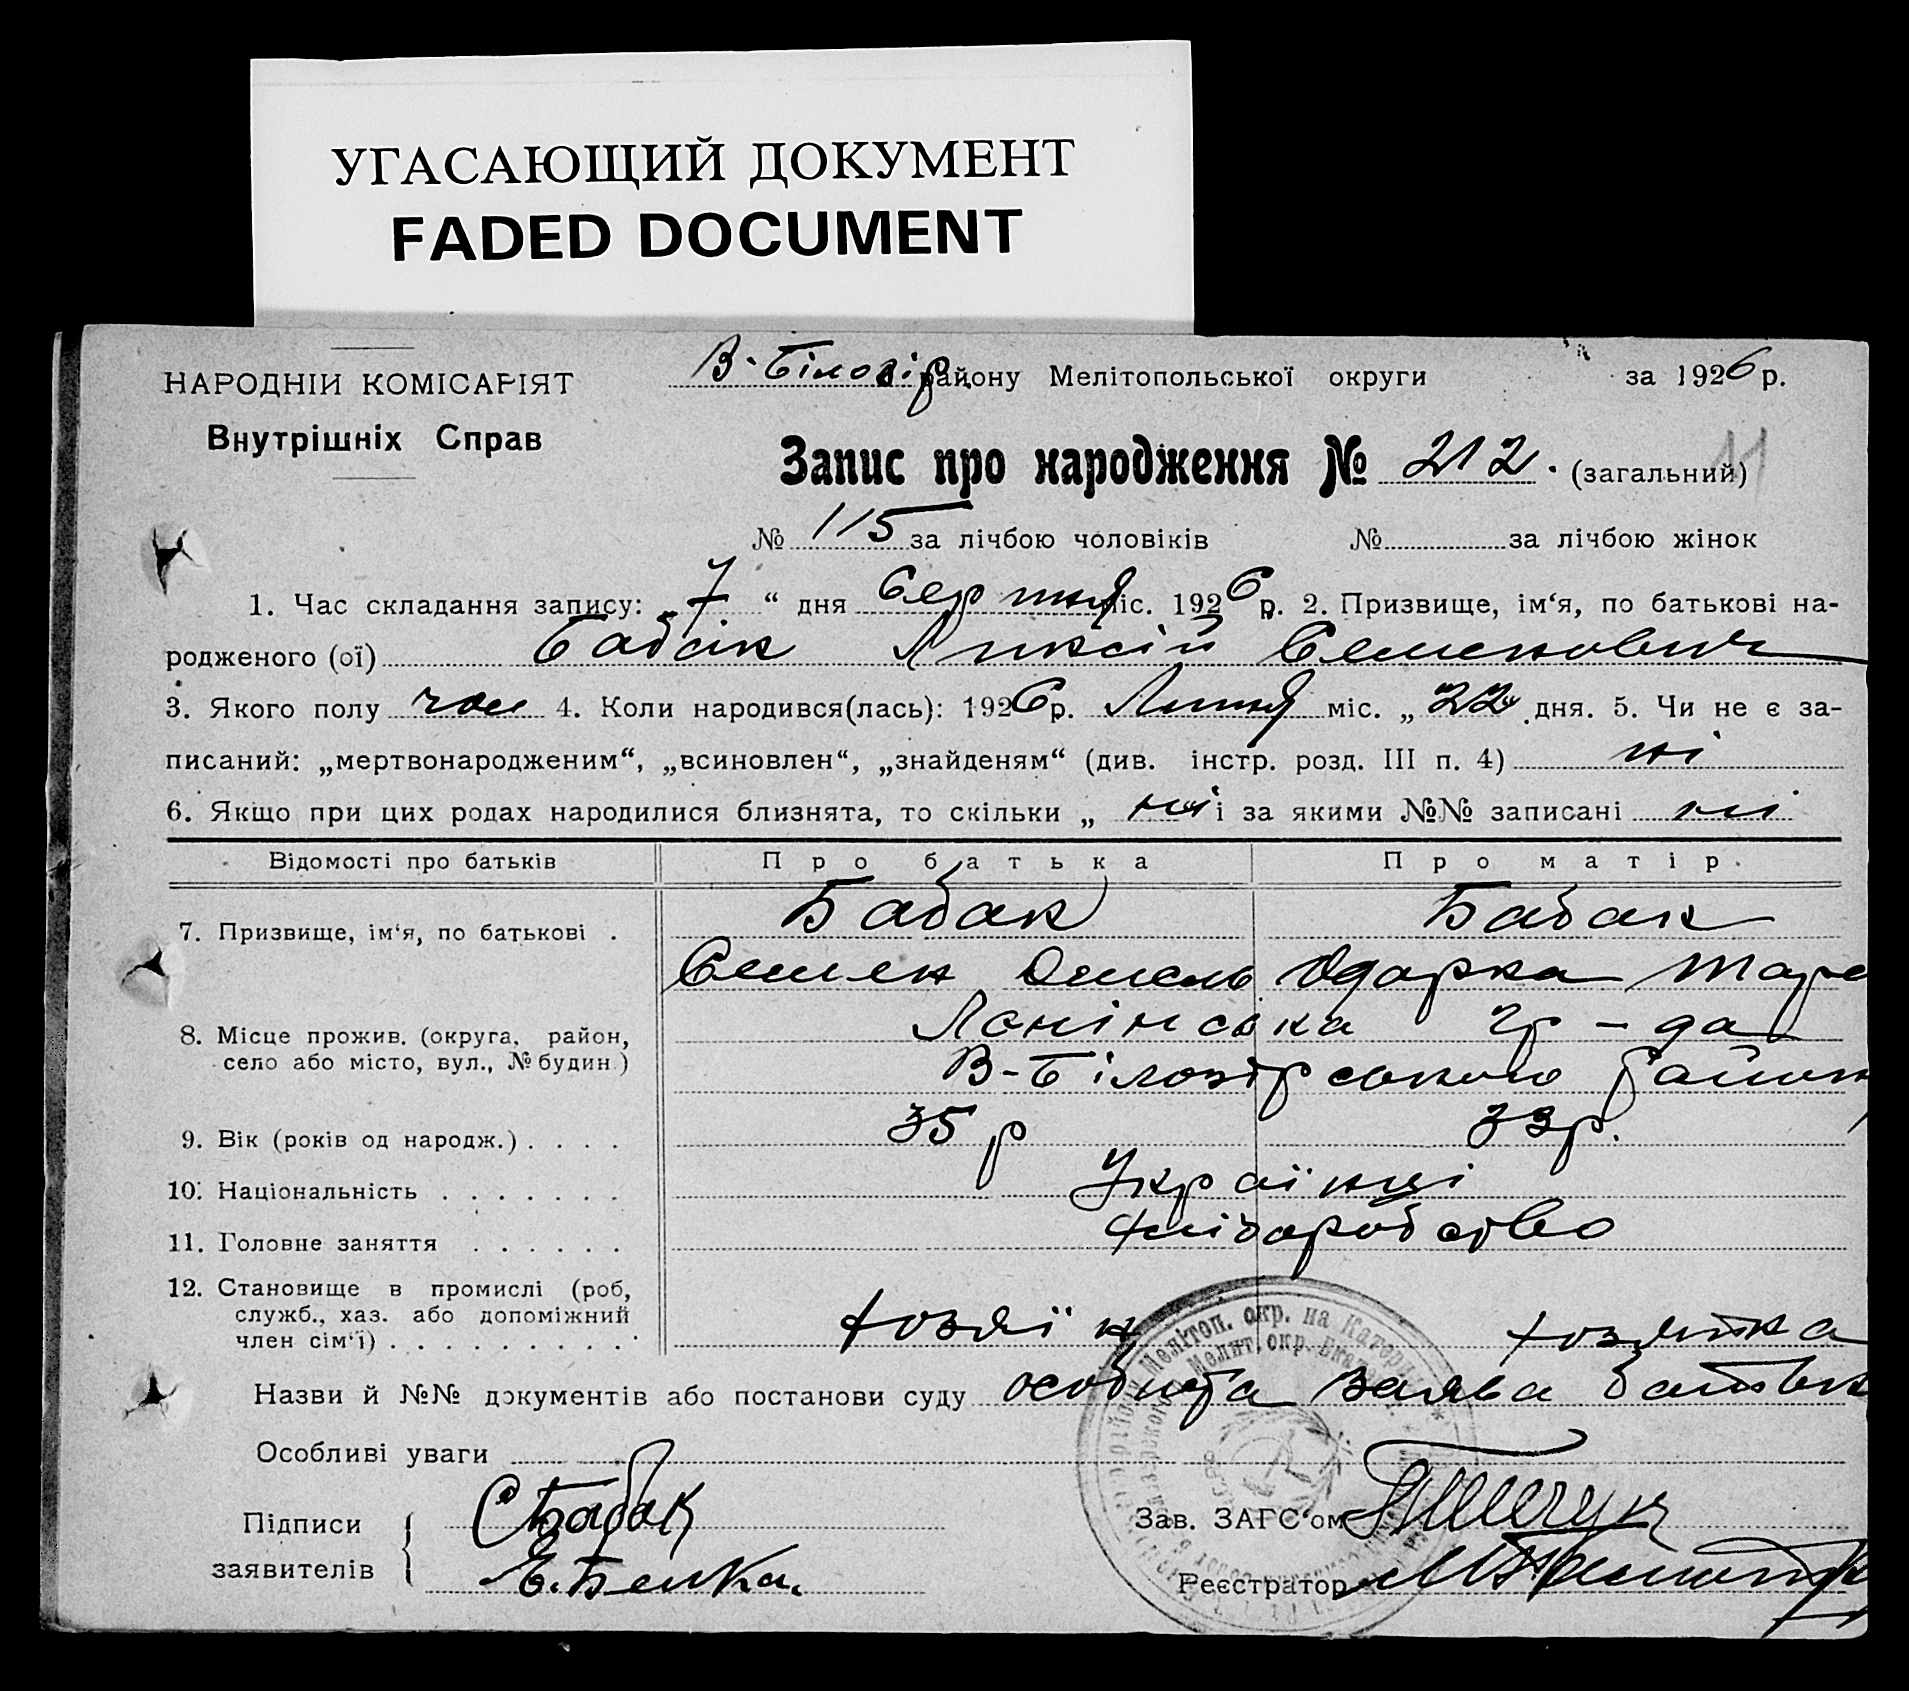 УГАСАЮЩИЙ ДОКУМЕНТ
FADED DOCUMENT
НАРОДНІЙ КОМІСАРІЯТ
Внутрішніх Справ
В-Білозір. району Мелітопольської округи за 1926 р.
Запис про народження № 212. (загальний)
11
№ 115 за лічбою чоловіків № за лічбою жінок
1. Час складання запису: „7“ дня Серпня міс. 1926 р. 2. Призвище, ім‘я, по батькові на-
родженого (ої) Бабак Семенович
3. Якого полу чол 4. Коли народився(лась): 1926 р. Липня міс. „22 дня. 5. Чи не є за-
писаний: „мертвонародженим“, „всиновлен“, „знайденям“ (див. інстр. розд. III п. 4) ні
6. Якщо при цих родах народилися близнята, то скільки „ ні“ і за якими №№ записані ні
Відомості про батьків Про батька Про матір.
7. Призвище, ім‘я, по батькові . Бабак Бабак
Семен Омельк Одарка
8. Місце прожив. (округа, район, село або місто, вул., № будин.) гр-да
В-Білозірського Район
9. Вік (років од народж.) . . . . 35 р 33 р.
10. Національність . . . . . . . Українці
11. Головне заняття . . . . . . хліборобство
12. Становище в промислі (роб, служб., хаз. або допоміжний член сім‘ї) . . . . . . . . . . хозяїн хозяйка
Назви й №№ документів або постанови суду особиста заява батьк
Особливі уваги
Підписи заявителів С Бабак
Зав. ЗАГС‘ом
Реєстратор